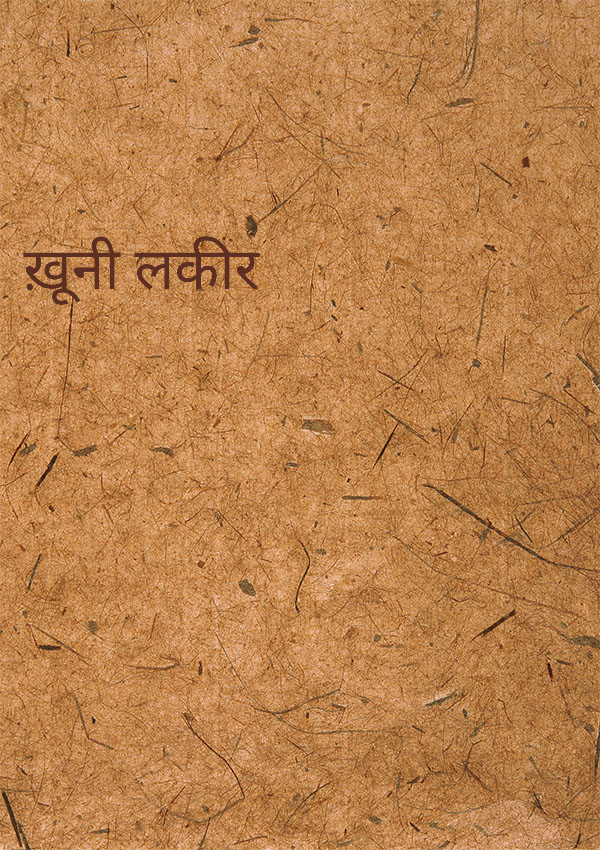 ख़ूनी लकीर